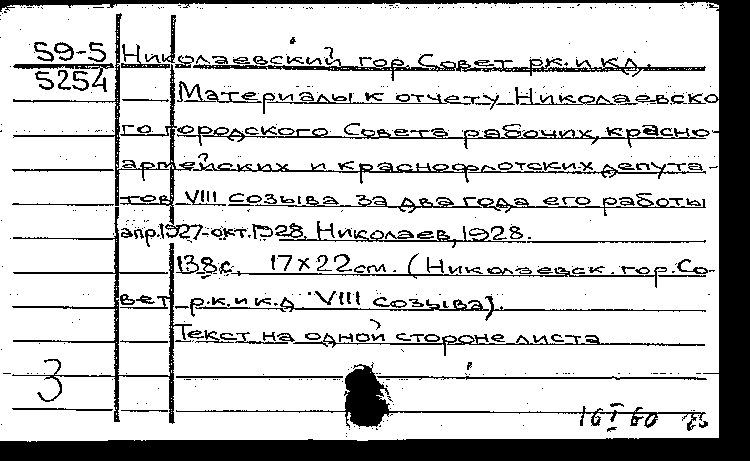 59-5 Николаевский гор. Совет рк. и кд.
5254
Материалы к отчету Николаевско
го городского Совета рабочих, красно-
армейских и краснофлотских депута-
тов VIII созыва за два года его работы
апр.1927-окт.1928. Николаев, 1928.
138с. 17×22см. (Николаевск. гор. Со-
вет р.к. и к.д VIII созыва).
Текст на одной стороне листа
3
16 I 60